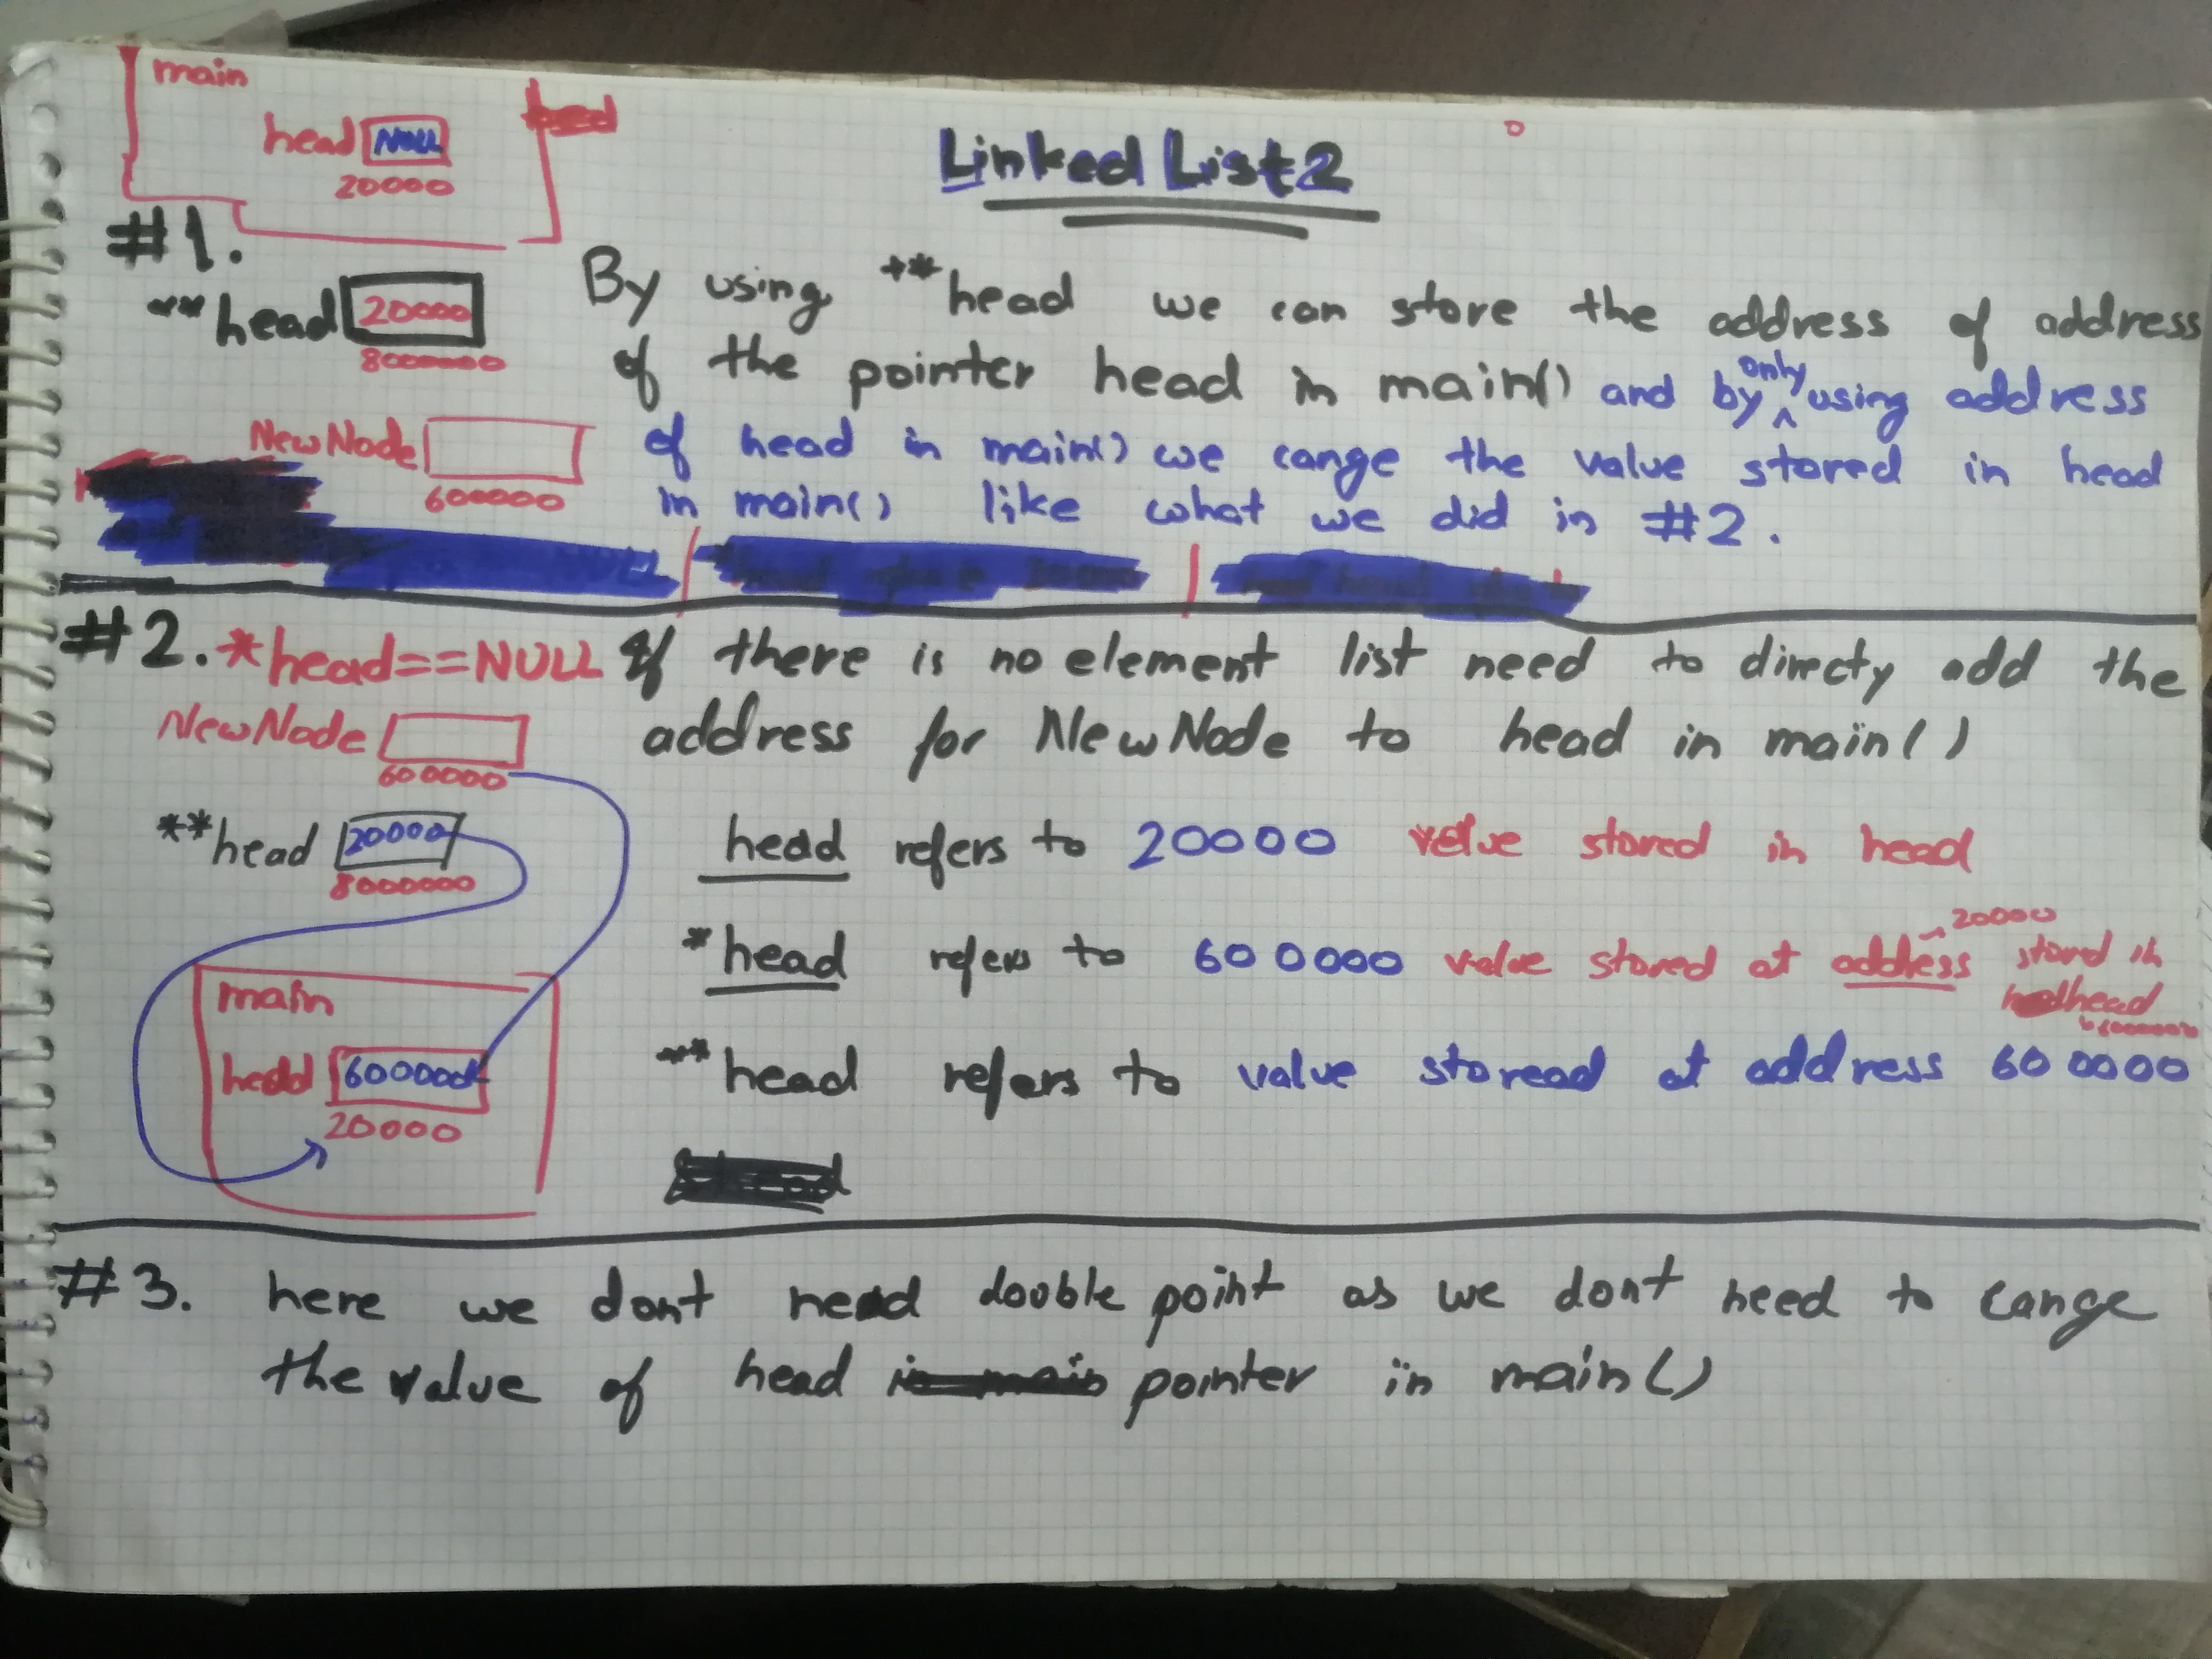 main
head NULL
20000
Linked List 2
#1.
**head 20000
8000000
NewNode
600000
By using **head we can store the address of address
of the pointer head in main() and by only using address
of head in main() we cange the value stored in head
in main() like what we did in #2.
#2. *head==NULL If there is no element list need to directy add the
address for NewNode to head in main()
NewNode
600000
**head 20000
8000000
main
head 600000
20000
head refers to 20000 value stored in head
*head refers to 600000 value stored at address 20000 stored in
head
**head refers to value storead at address 600000
#3. here we dont need double point as we dont need to cange
the value of head pointer in main()